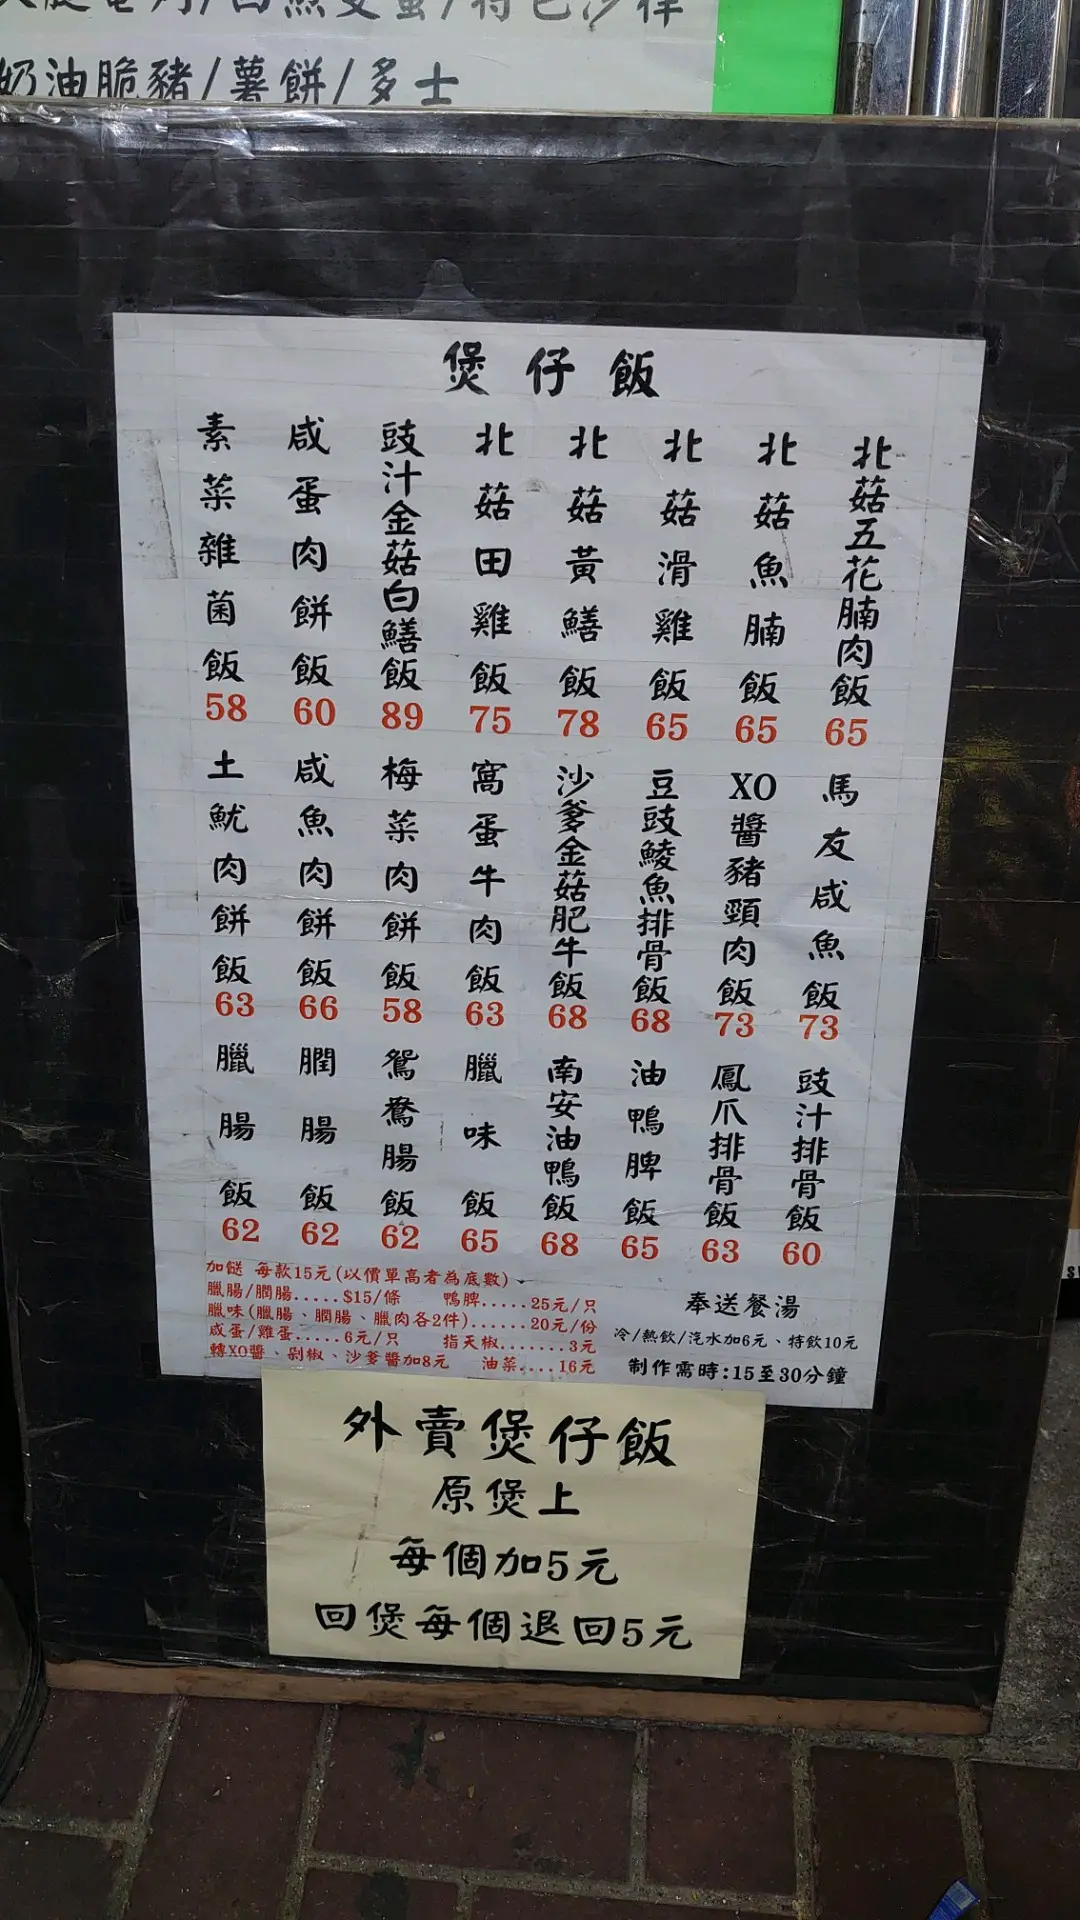 奶油脆豬/薯餅/多士
煲仔飯
北菇五花腩肉飯
65
北菇魚腩飯
65
北菇滑雞飯
65
北菇黃鱔飯
78
北菇田雞飯
75
豉汁金菇白鱔飯
89
咸蛋肉餅飯
60
素菜雜菌飯
58
馬友咸魚飯
73
XO醬豬頸肉飯
73
豆豉鯪魚排骨飯
68
沙爹金菇肥牛飯
68
窩蛋牛肉飯
63
梅菜肉餅飯
58
咸魚肉餅飯
66
土魷肉餅飯
63
豉汁排骨飯
60
鳳爪排骨飯
63
油鴨脾飯
65
南安油鴨飯
68
臘味飯
65
鴛鴦腸飯
62
膶腸飯
62
臘腸飯
62
加餸 每款15元(以價單高者為底數)
臘腸/膶腸.....$15/條 鴨脾.....25元/只
臘味(臘腸、膶腸、臘肉各2件)......20元/份
咸蛋/雞蛋.....6元/只 指天椒.......3元
轉XO醬、剁椒、沙爹醬加8元 油菜....16元
奉送餐湯
冷/熱飲/汽水加6元、特飲10元
制作需時:15至30分鐘
外賣煲仔飯
原煲上
每個加5元
回煲每個退回5元